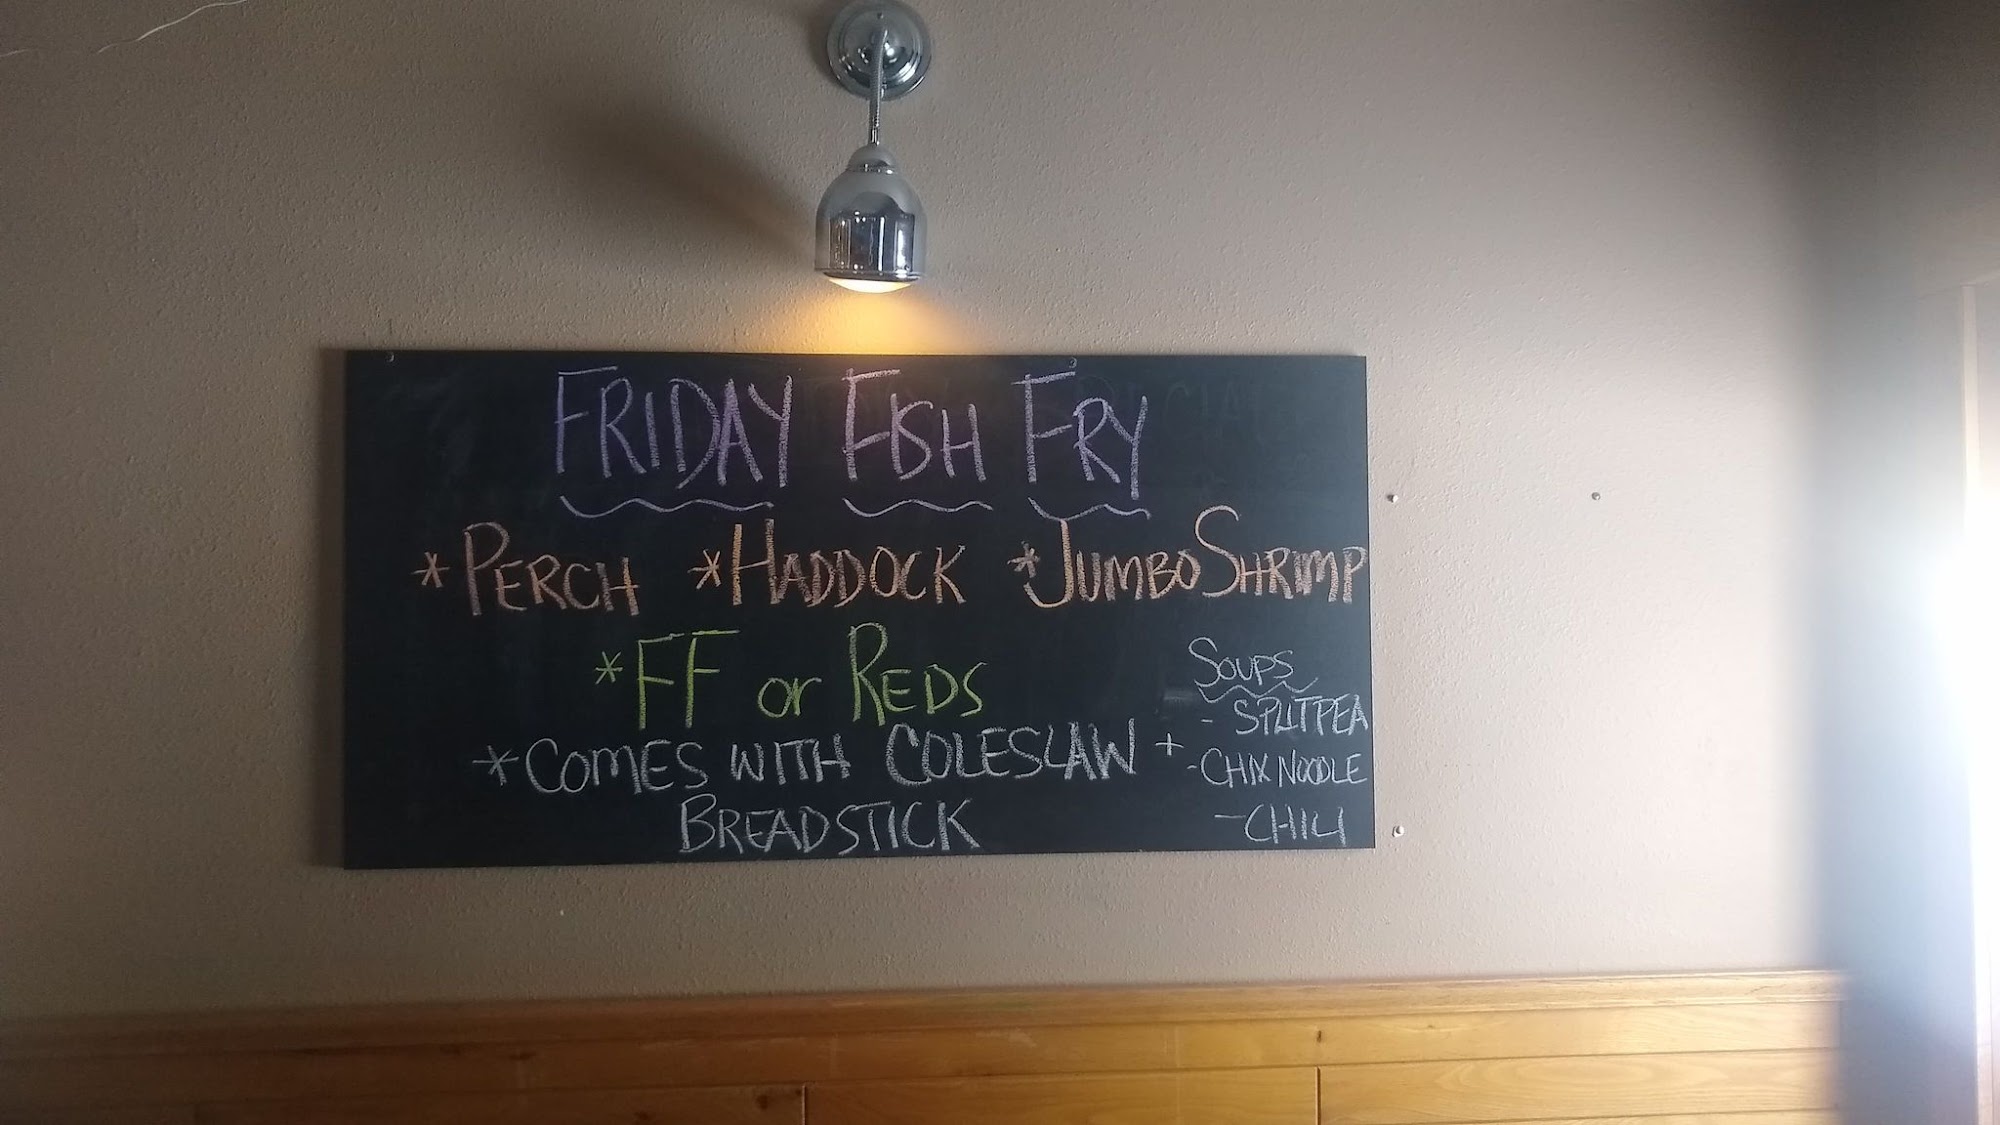 FRIDAY FISH FRY
*PERCH *HADDOCK *JUMBO SHRIMP
*FF or REDS
*COMES WITH COLESLAW +
BREADSTICK
SOUPS
- SPLIT PEA
- CHIX NOODLE
- CHILI